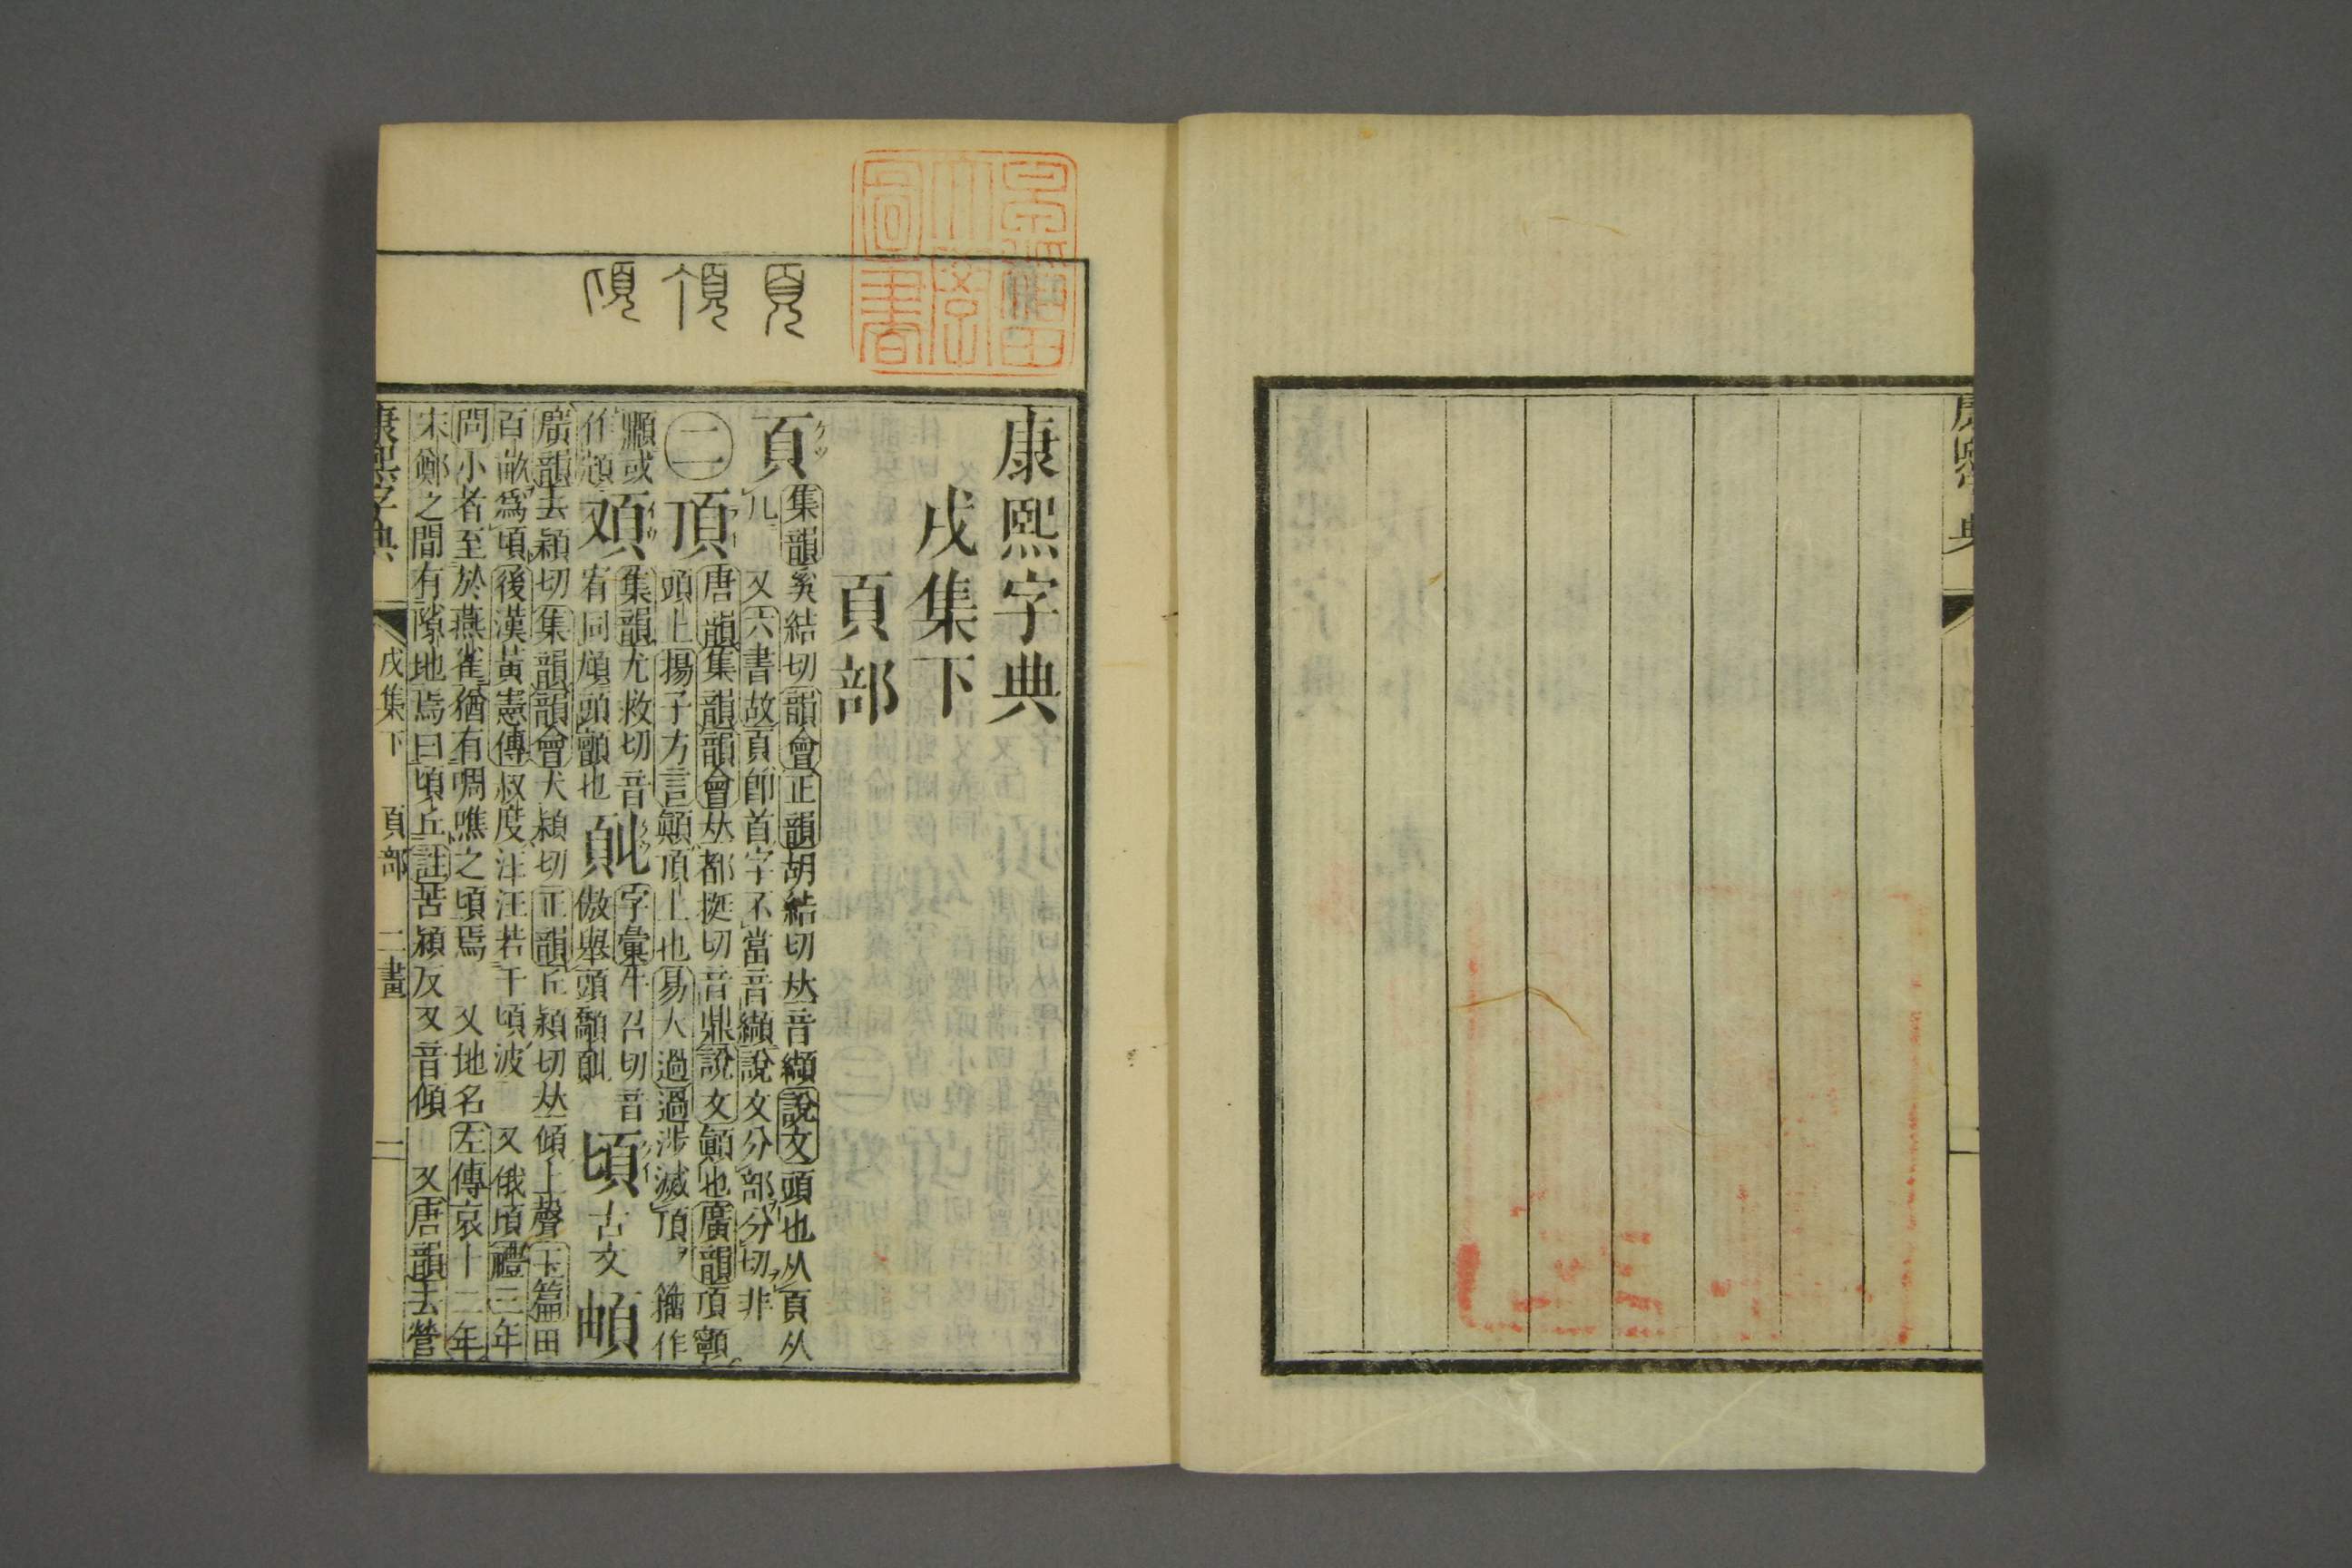 康熙字典
戌集下
頁部
頁
集韻奚結切韻會正韻胡結切𠀤音纈說文頭也从頁从
儿 又六書故頁卽首字不當音纈說文分部分切非
二
頂
唐韻集韻韻會𠀤都挺切音鼎說文顚也廣韻頂𩕳
頭上揚子方言顚頂上也易大過過涉滅頂 籀作
顯或
作
集韻尤救切音
宥同頄頭顫也
字彙牛召切音
傲舉頭
頃
古文
廣韻去潁切集韻韻會犬潁切正韻丘潁切𠀤傾上聲玉篇田
百畝爲頃後漢黃憲傳叔度汪汪若千頃波 又俄頃禮三年
問小者至於燕雀猶有啁噍之頃焉 又地名左傳哀十二年
宋鄭之閒有隙地焉曰頃丘註苦潁反又音傾 又唐韻去營
康熙字典
戌集下
頁部
二畫
一
康熙字典